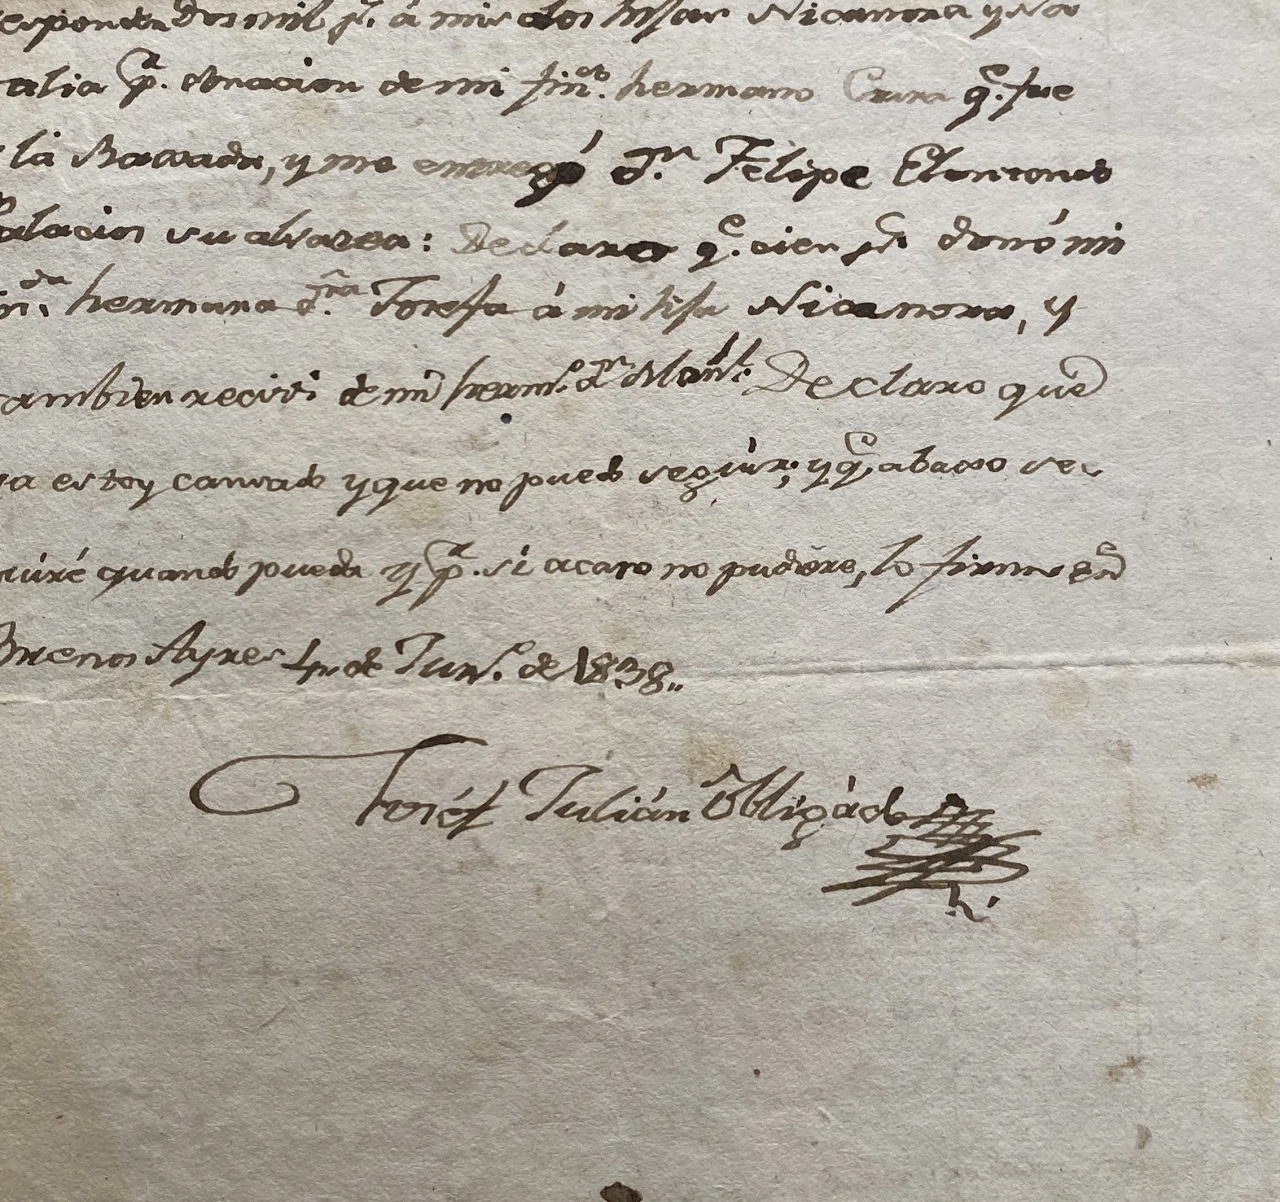 esponden dos mil p.s á mis dos hijas Nicanora y Na
alia p.r donacion de mi fin.do hermano Cura q.e fue
la Baxada, y me entregó d.n Felipe
Palacios su alvacea: Declaro q.e cien p.s donó mi
fin.da hermana d.ña Josefa á mi hija Nicanora, y
ambien recivi de mi herm.o d.n Man.l Declaro que
ya estoy cansado y que no puedo seguir; y q.e abaxo se-
guiré quando pueda y p.r si acaso no pudiere, lo firmo en
Buenos Ayres 4 de Jun.o de 1838,,
Joséf Julián Obligádo